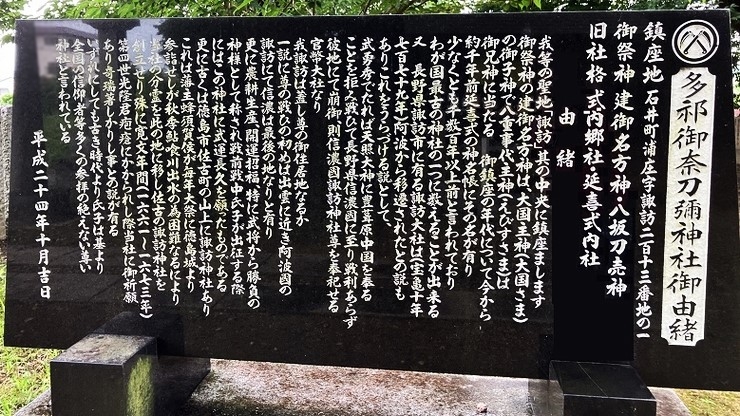 多祁御奈刀彌神社御由緒
鎮座地 石井町浦庄字諏訪二百十三番地の一
御祭神 建御名方神・八坂刀売神
旧社格 式内郷社・延喜式内社
由緒
我等の聖地「諏訪」其の中央に鎮座まします
御祭神の建御名方神は、大国主神(大国さま)
の御子神で八重事代主神(えびすさま)は
御兄神に当たる 御鎮座の年代について今から
約千年前延喜式の神名帳にその名が有り
少なくとも千数百年以上前と言われており
わが国最古の神社の一つに数えることが出来る
又 長野県諏訪市に有る諏訪大社は(宝亀十年
七百七十九年)阿波から移遷されたとの説も
ありこれをうらづける説として、
武勇秀でたれば天照大神に豊葦原中国を奉る
ことを拒み戦ひて長野県信濃国に至り戦利あらず
彼地にて崩御 則信濃國諏訪神社尊を奉祀せる
官幣大社なり
又我諏訪は蓋し尊の御住居地なるか
一説に尊の戦ひの初めは出雲に近き阿波国の
諏訪にして信濃は最後の地なりと有り
更に農耕生産、開運招福、特に武将から勝負の
神様として称され戦前戦中氏子が出征する際
にはこの神社に武運長久を願ったものである
更に古くは徳島市佐古町の山上に諏訪神社あり
これは藩主蜂須賀侯が毎年大祭に徳島城より
参詣せしが秋季鮎喰川出水の為困難なるにより
当社の分霊を此の地に移し佐古の諏訪神社を
創立せり 殊に寛文年間(一六六一〜一六七三年)
第四世光隆君疱瘡にかかられし際当社に御祈願
あり奇瑞著しかりし事との話が有る
いずれにしても古き時代より氏子は基より
全国の信仰者等多くの参拝の絶えない尊い
神社と言われている
平成二十四年十月吉日